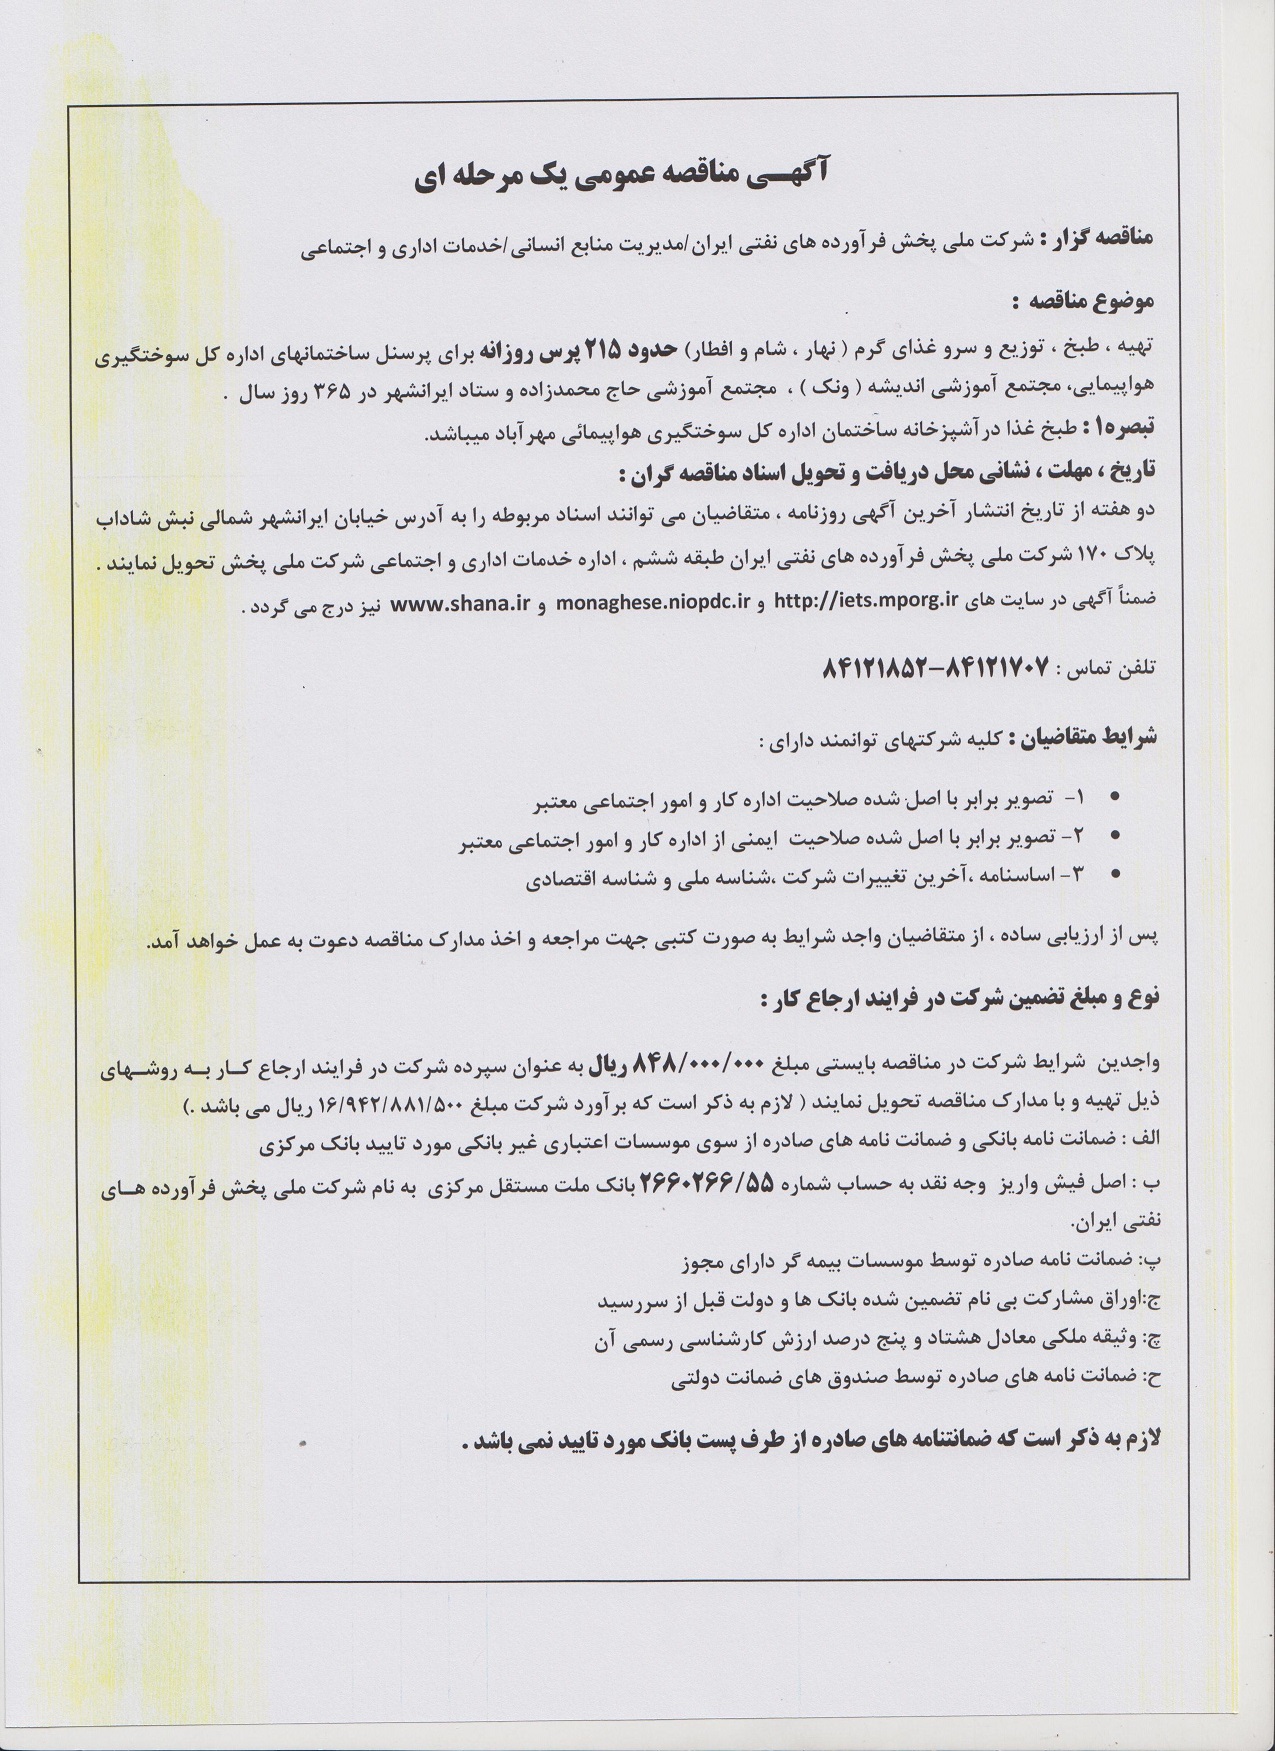 آگهـــی مناقصه عمومی یک مرحله ای
مناقصه گزار : شرکت ملی پخش فرآورده های نفتی ایران/مدیریت منابع انسانی/خدمات اداری و اجتماعی
موضوع مناقصه :
تهیه ، طبخ ، توزیع و سرو غذای گرم ( نهار ، شام و افطار) حدود ۲۱۵ پرس روزانه برای پرسنل ساختمانهای اداره کل سوختگیری
هواپیمایی، مجتمع آموزشی اندیشه ( ونک ) ، مجتمع آموزشی حاج محمدزاده و ستاد ایرانشهر در ۳۶۵ روز سال .
تبصره۱ : طبخ غذا درآشپزخانه ساختمان اداره کل سوختگیری هواپیمائی مهرآباد میباشد.
تاریخ ، مهلت ، نشانی محل دریافت و تحویل اسناد مناقصه گران :
دو هفته از تاریخ انتشار آخرین آگهی روزنامه ، متقاضیان می توانند اسناد مربوطه را به آدرس خیابان ایرانشهر شمالی نبش شاداب
پلاک ۱۷۰ شرکت ملی پخش فرآورده های نفتی ایران طبقه ششم ، اداره خدمات اداری و اجتماعی شرکت ملی پخش تحویل نمایند .
ضمناً آگهی در سایت های http://iets.mporg.ir و monaghese.niopdc.ir و www.shana.ir نیز درج می گردد .
تلفن تماس : ۸۴۱۲۱۷۰۷–۸۴۱۲۱۸۵۲
شرایط متقاضیان : کلیه شرکتهای توانمند دارای :
• ۱- تصویر برابر با اصل شده صلاحیت اداره کار و امور اجتماعی معتبر
• ۲- تصویر برابر با اصل شده صلاحیت ایمنی از اداره کار و امور اجتماعی معتبر
• ۳- اساسنامه ،آخرین تغییرات شرکت ،شناسه ملی و شناسه اقتصادی
پس از ارزیابی ساده ، از متقاضیان واجد شرایط به صورت کتبی جهت مراجعه و اخذ مدارک مناقصه دعوت به عمل خواهد آمد.
نوع و مبلغ تضمین شرکت در فرایند ارجاع کار :
واجدین شرایط شرکت در مناقصه بایستی مبلغ ۸۴۸/۰۰۰/۰۰۰ ریال به عنوان سپرده شرکت در فرایند ارجاع کـار بـه روشـهای
ذیل تهیه و با مدارک مناقصه تحویل نمایند ( لازم به ذکر است که برآورد شرکت مبلغ ۱۶/۹۴۲/۸۸۱/۵۰۰ ریال می باشد .)
الف : ضمانت نامه بانکی و ضمانت نامه های صادره از سوی موسسات اعتباری غیر بانکی مورد تایید بانک مرکزی
ب : اصل فیش واریز وجه نقد به حساب شماره ۲۶۶۰۲۶۶/۵۵ بانک ملت مستقل مرکزی به نام شرکت ملی پخش فرآورده هـای
نفتی ایران.
پ: ضمانت نامه صادره توسط موسسات بیمه گر دارای مجوز
ج:اوراق مشارکت بی نام تضمین شده بانک ها و دولت قبل از سررسید
چ: وثیقه ملکی معادل هشتاد و پنج درصد ارزش کارشناسی رسمی آن
ح: ضمانت نامه های صادره توسط صندوق های ضمانت دولتی
لازم به ذکر است که ضمانتنامه های صادره از طرف پست بانک مورد تایید نمی باشد .